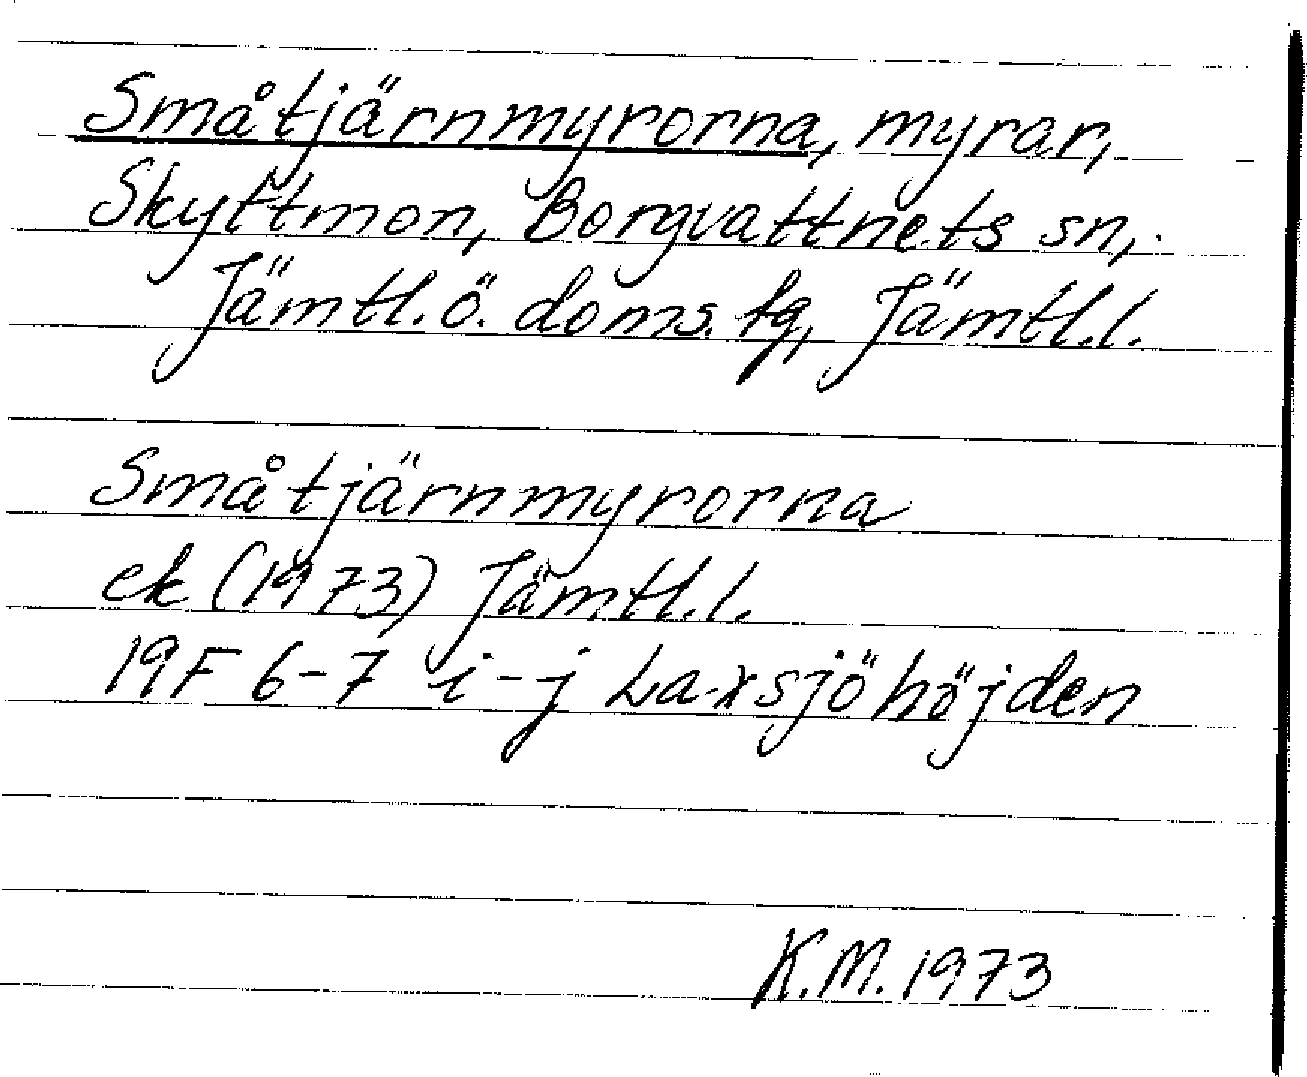 Småtjärnmyrorna, myrar,
Skyttmon, Borgvattnets sn,
Jämtl. ö. doms. fg, Jämtl. l.
Småtjärnmyrorna
ek (1973) Jämtl. l.
19F 6-7 i-j Laxsjöhöjden
K.M. 1973